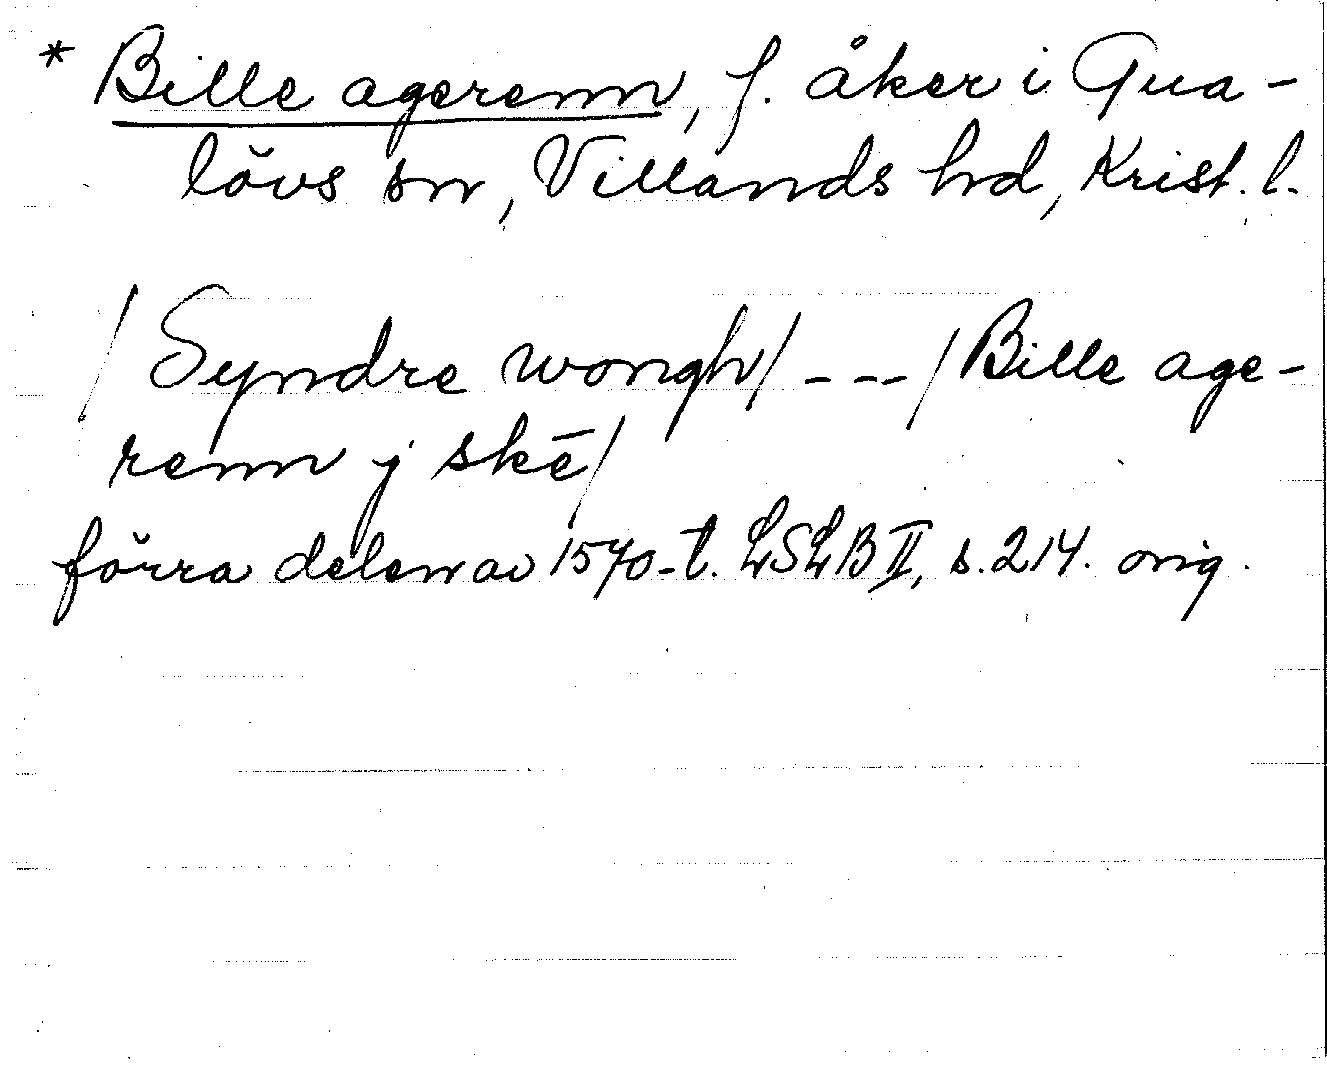 * Bille agerenn, f. åker i Gua-
lövs sn, Villands hd, Krist. l.
/ Syndre wongh / --- / Bille age-
renn j skē /
förra delen av 1570-t. LSLB II, s. 214. orig.